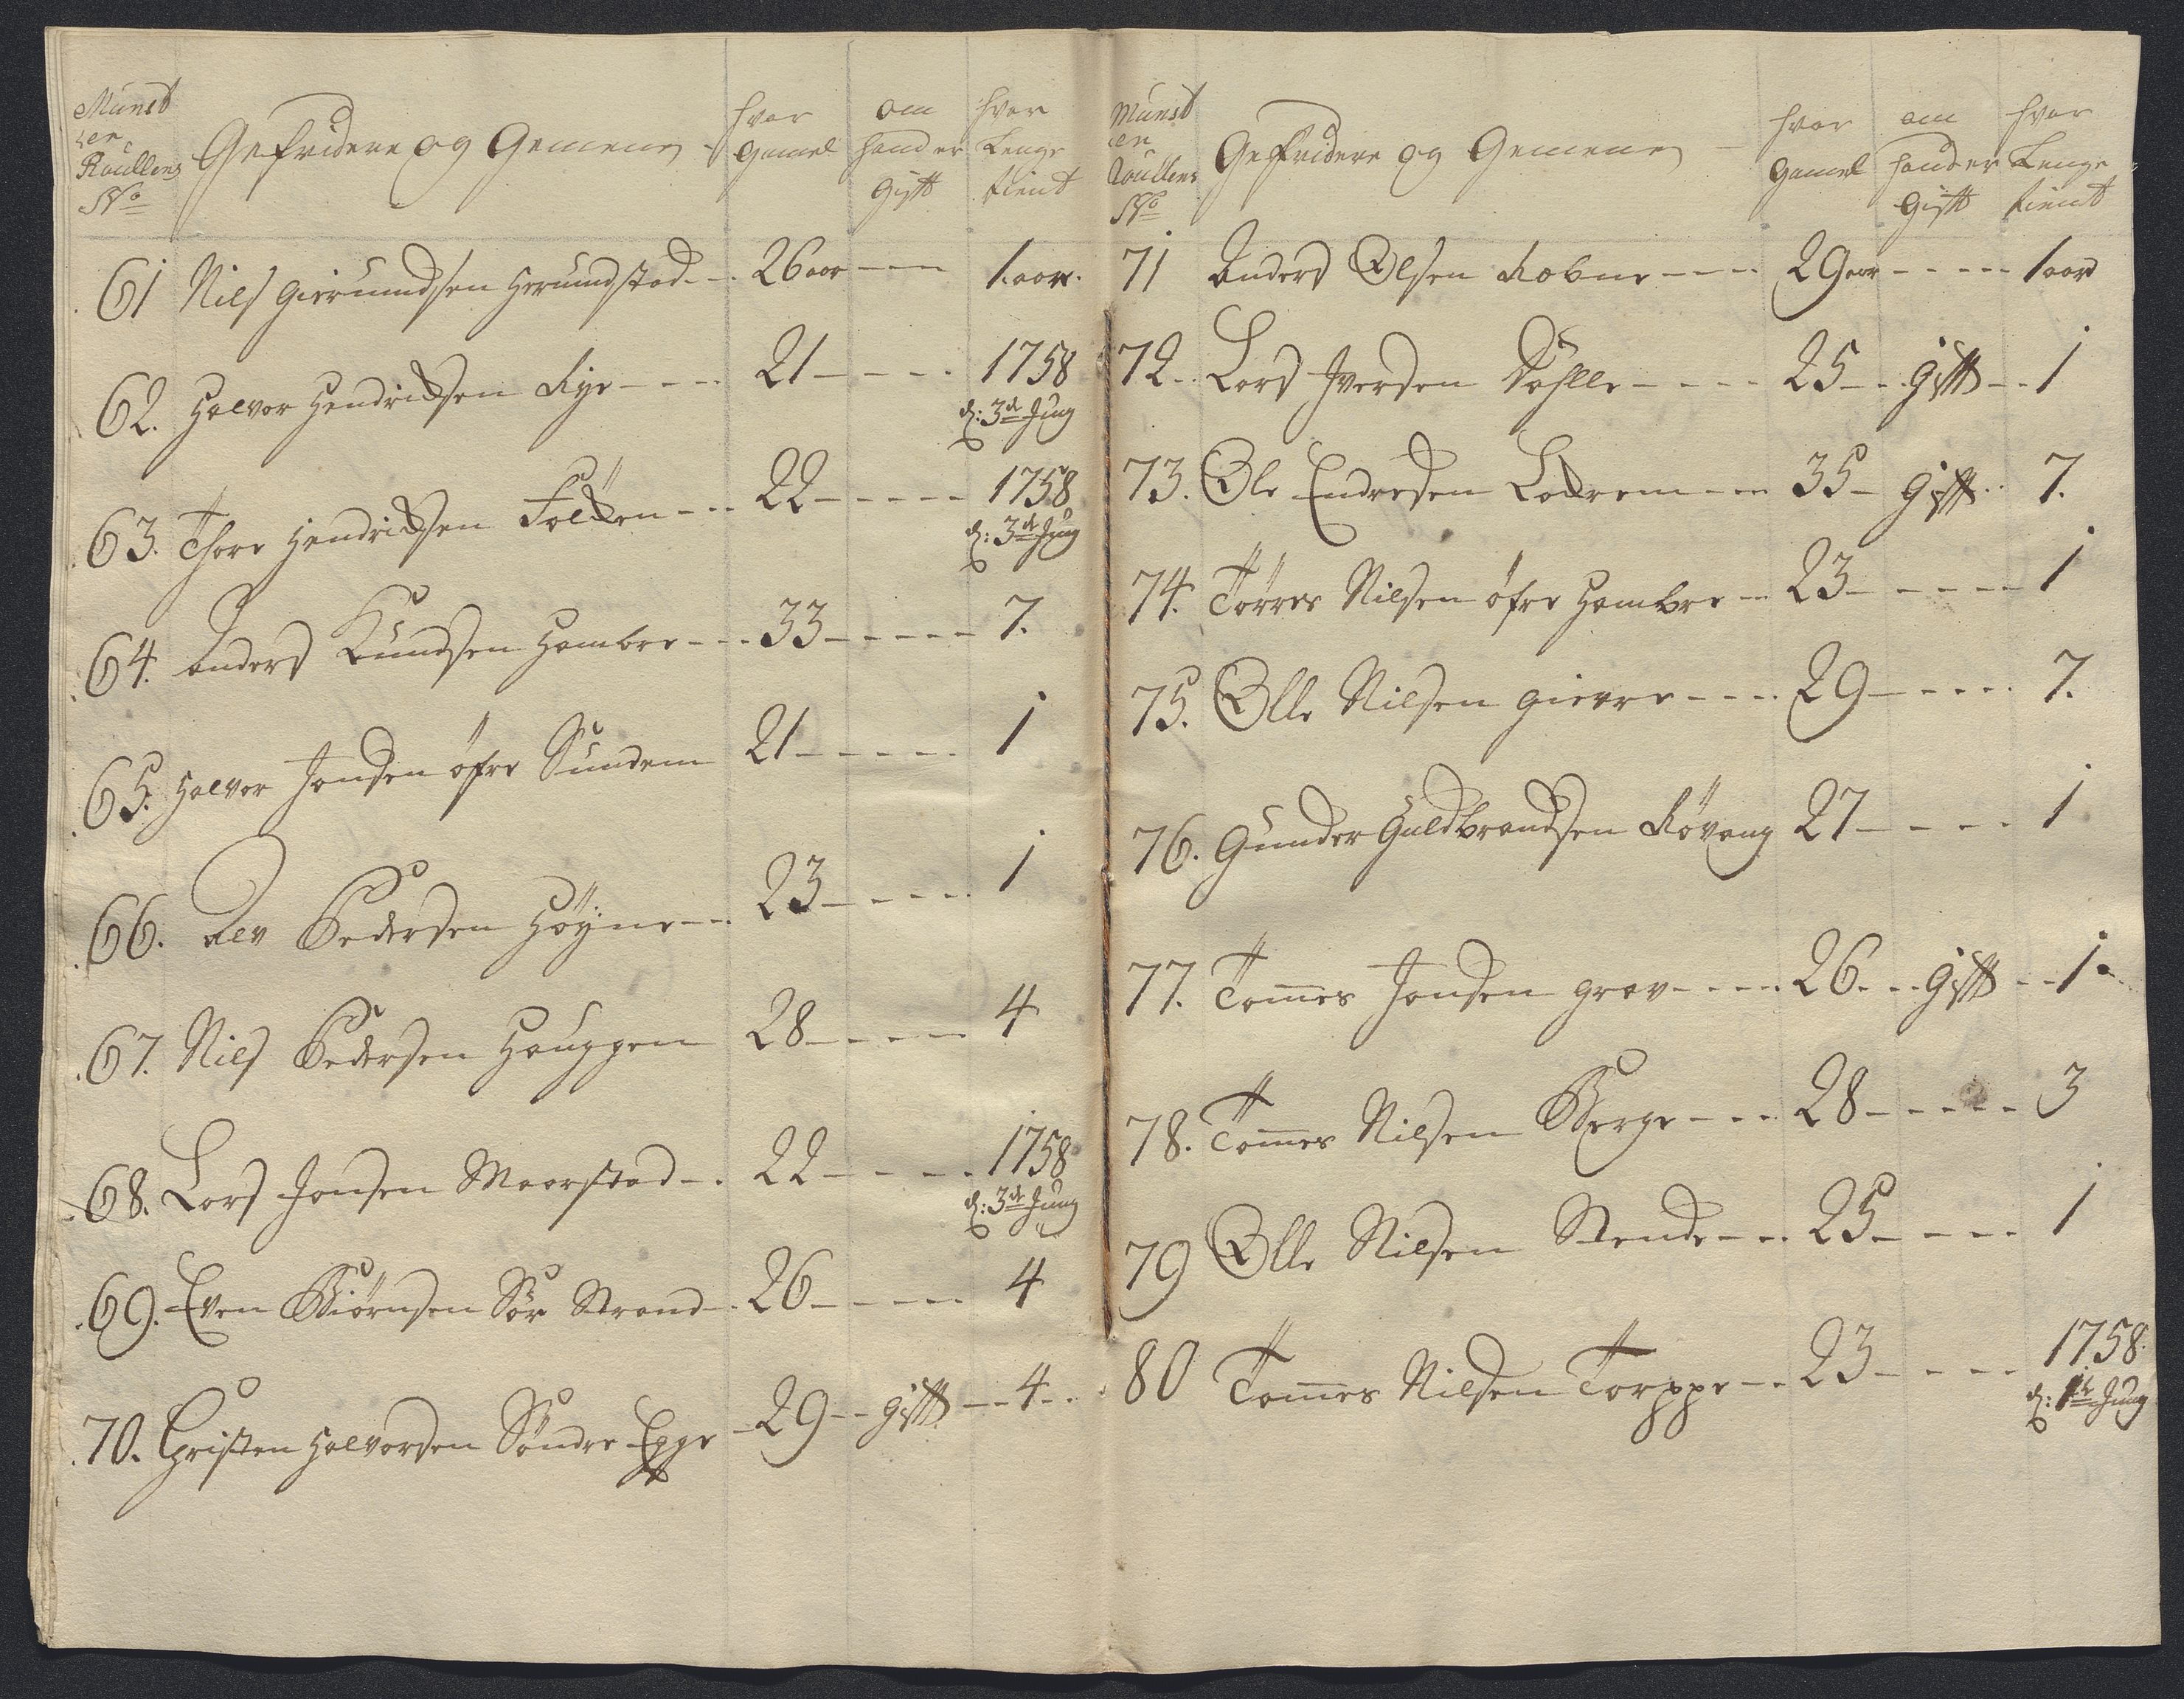 Munst
er
Roullens
No
Gefridere og Gemene
hvor
gamel
om
hand er
gift
hvor
Lenge
tient
61 Nils Gierumdsen Herumdstad 26 aar 1 aar.
62. Halvor Hendricksen Rye 21 1758
d: 3de Juny
63. Thore Hendricksen Folken 22 1758
d: 3de Juny
64. Anders Knudsen Hambre 33 7.
65. Halvor Jonsen öfre Sundem 21 1
66. Alv Pedersen Höyne 23 1
67. Nils Pedersen Hauggen 28 4
68. Lars Jonsen Maarstad 22 1758
d: 3de Juny
69. Even Biörnsen Sör Strand 26 4
70. Christen Halvorsen Söndre Egge 29 gift 4
Munst
er
Roullens
No
Geffridere og Gemene
hvor
gamel
om
hand er
gift
hvor
Lenge
tient
71 Anders Olsen Robne 29 aar 1 aar
72. Lars Iversen Dahlle 25 gift 1
73. Ole Endresen Lockrem 35 gift 7.
74. Törres Nilsen öfre Hambre 23 1
75. Olle Nilsen Gievre 29 7.
76. Gunder Guldbrandsen Rövang 27 1
77. Tomes Jonsen grav 26 gift 1
78. Tomes Nilsen Berge 28 3
79 Olle Nilsen Stende 25 1
80 Tomes Nilsen Torppe 23 1758.
d: 1te Juny